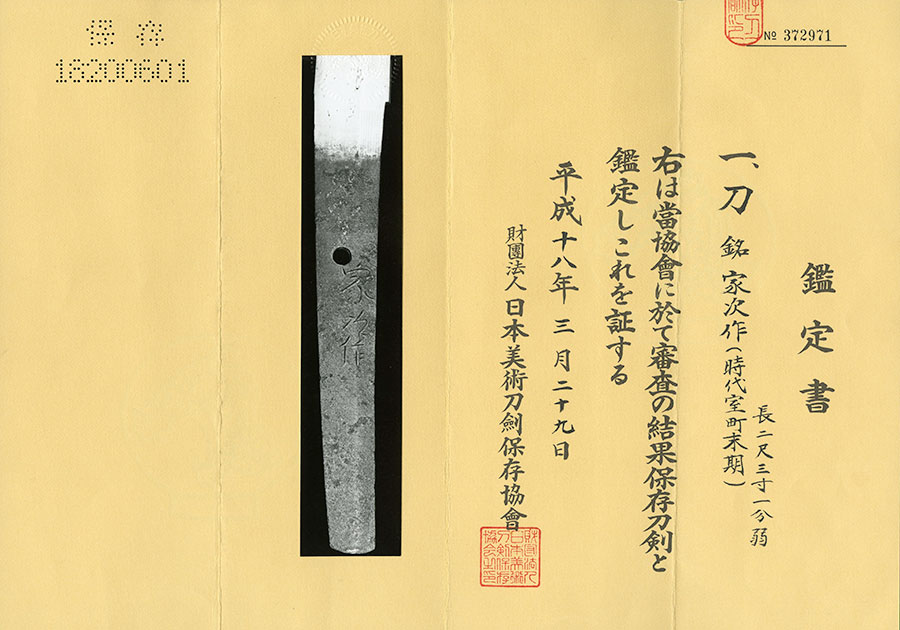 № 372971
鑑定書
一、刀 銘 家次作(時代室町末期)
長二尺三寸一分弱
右は當協會に於て審査の結果保存刀剣と
鑑定しこれを証する
平成十八年三月二十九日
財團法人日本美術刀劍保存協會
家次作
保存
18200601